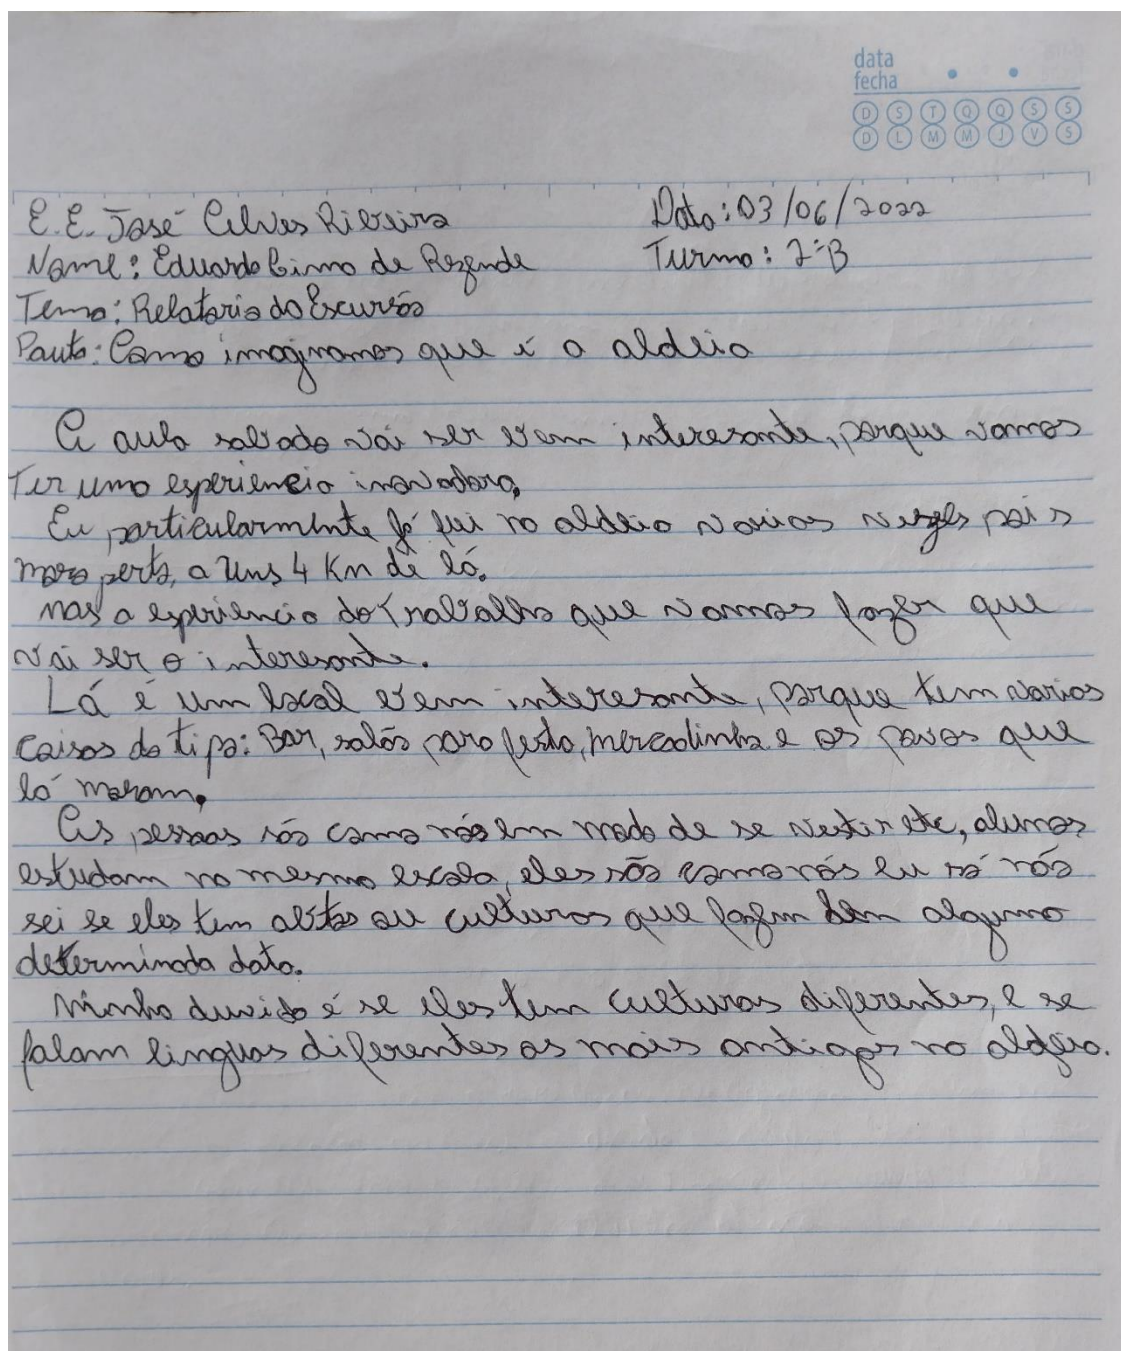 data
fecha
D S T Q Q S S
D L M M J V S
E.E. José Alves Ribeiro Data: 03/06/2022
Nome: Eduardo Cimo de Rezende Turma: 2ºB
Tema: Relatorio da Excursão
Pauta: Como imaginamos que é a aldeia
A aula sabado vai ser bem interesante, porque vamos
Ter uma esperiencia inovadora,
Eu particularmente já fui na aldeia varias vezes pois
moro perto, a uns 4 Km de lá.
mas a esperiencia do trabalho que vamos fazer que
vai ser o interesante.
Lá é um local bem interesante, porque tem varias
coisas do tipo: Bar, salão para festa, mercadinho e os povos que
lá moram.
As pessoas são como nós em modo de se vestir etc, alunos
estudam na mesma escola, eles são como nós eu só não
sei se eles tem abitos ou culturas que fazem bem alguma
determinada data.
Minha duvida é se eles tem culturas diferentes, e se
falam linguas diferentes os mais antigos na aldeia.